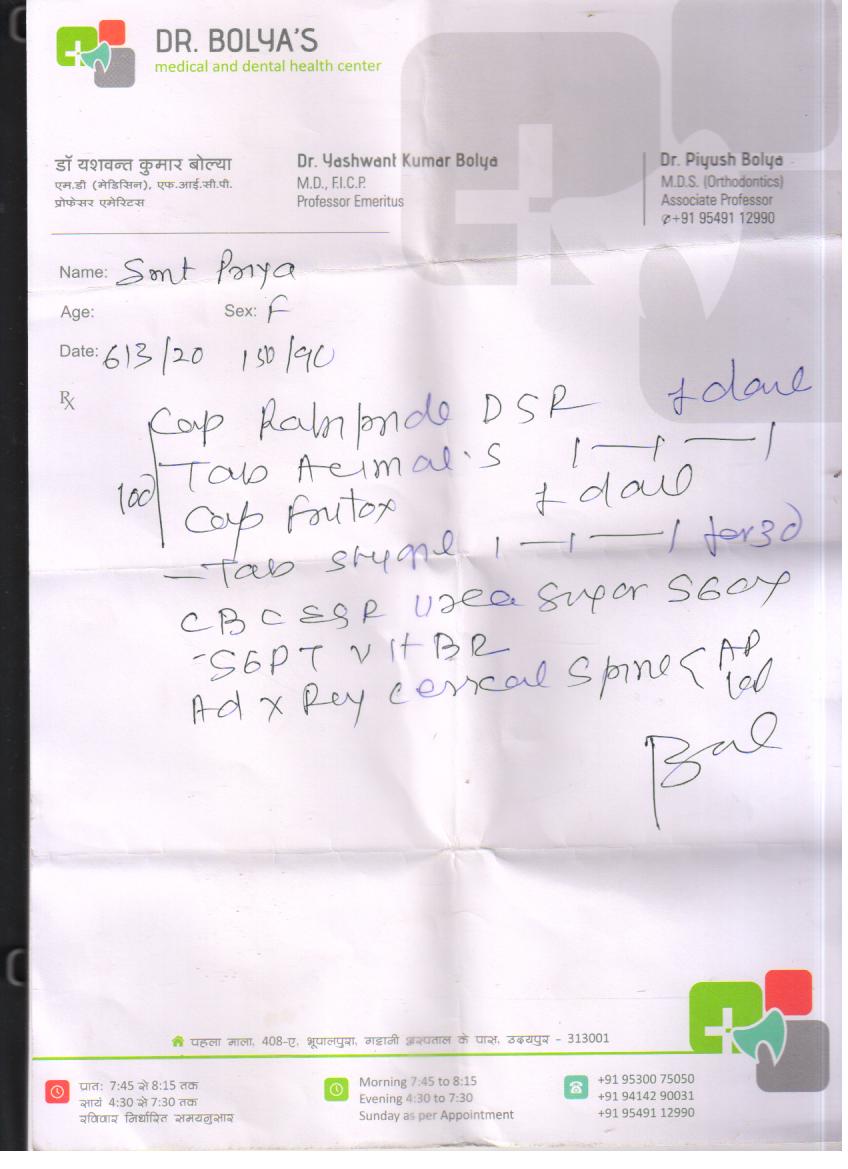 DR. BOLYA'S
medical and dental health center
डॉ यशवन्त कुमार बोल्या
एम.डी (मेडिसिन), एफ.आई.सी.पी.
प्रोफेसर एमेरिटस
Dr. Yashwant Kumar Bolya
M.D., F.I.C.P.
Professor Emeritus
Dr. Piyush Bolya
M.D.S. (Orthodontics)
Associate Professor
✆+91 95491 12990
Name: Smt Priya
Age: Sex: F
Date: 6/3/20 150/90
Rx
Cap DSR
Tab
10d Cap
Tab for 3d
CBC ESR Urea Sugar SGOT
SGPT
Ad X Ray Cervical Spine < AP
पहला माला, 408-ए, भूपालपुरा, गट्टानी अस्पताल के पास, उदयपुर - 313001
प्रातः 7:45 से 8:15 तक
सायं 4:30 से 7:30 तक
रविवार निर्धारित समयनुसार
Morning 7:45 to 8:15
Evening 4:30 to 7:30
Sunday as per Appointment
+91 95300 75050
+91 94142 90031
+91 95491 12990